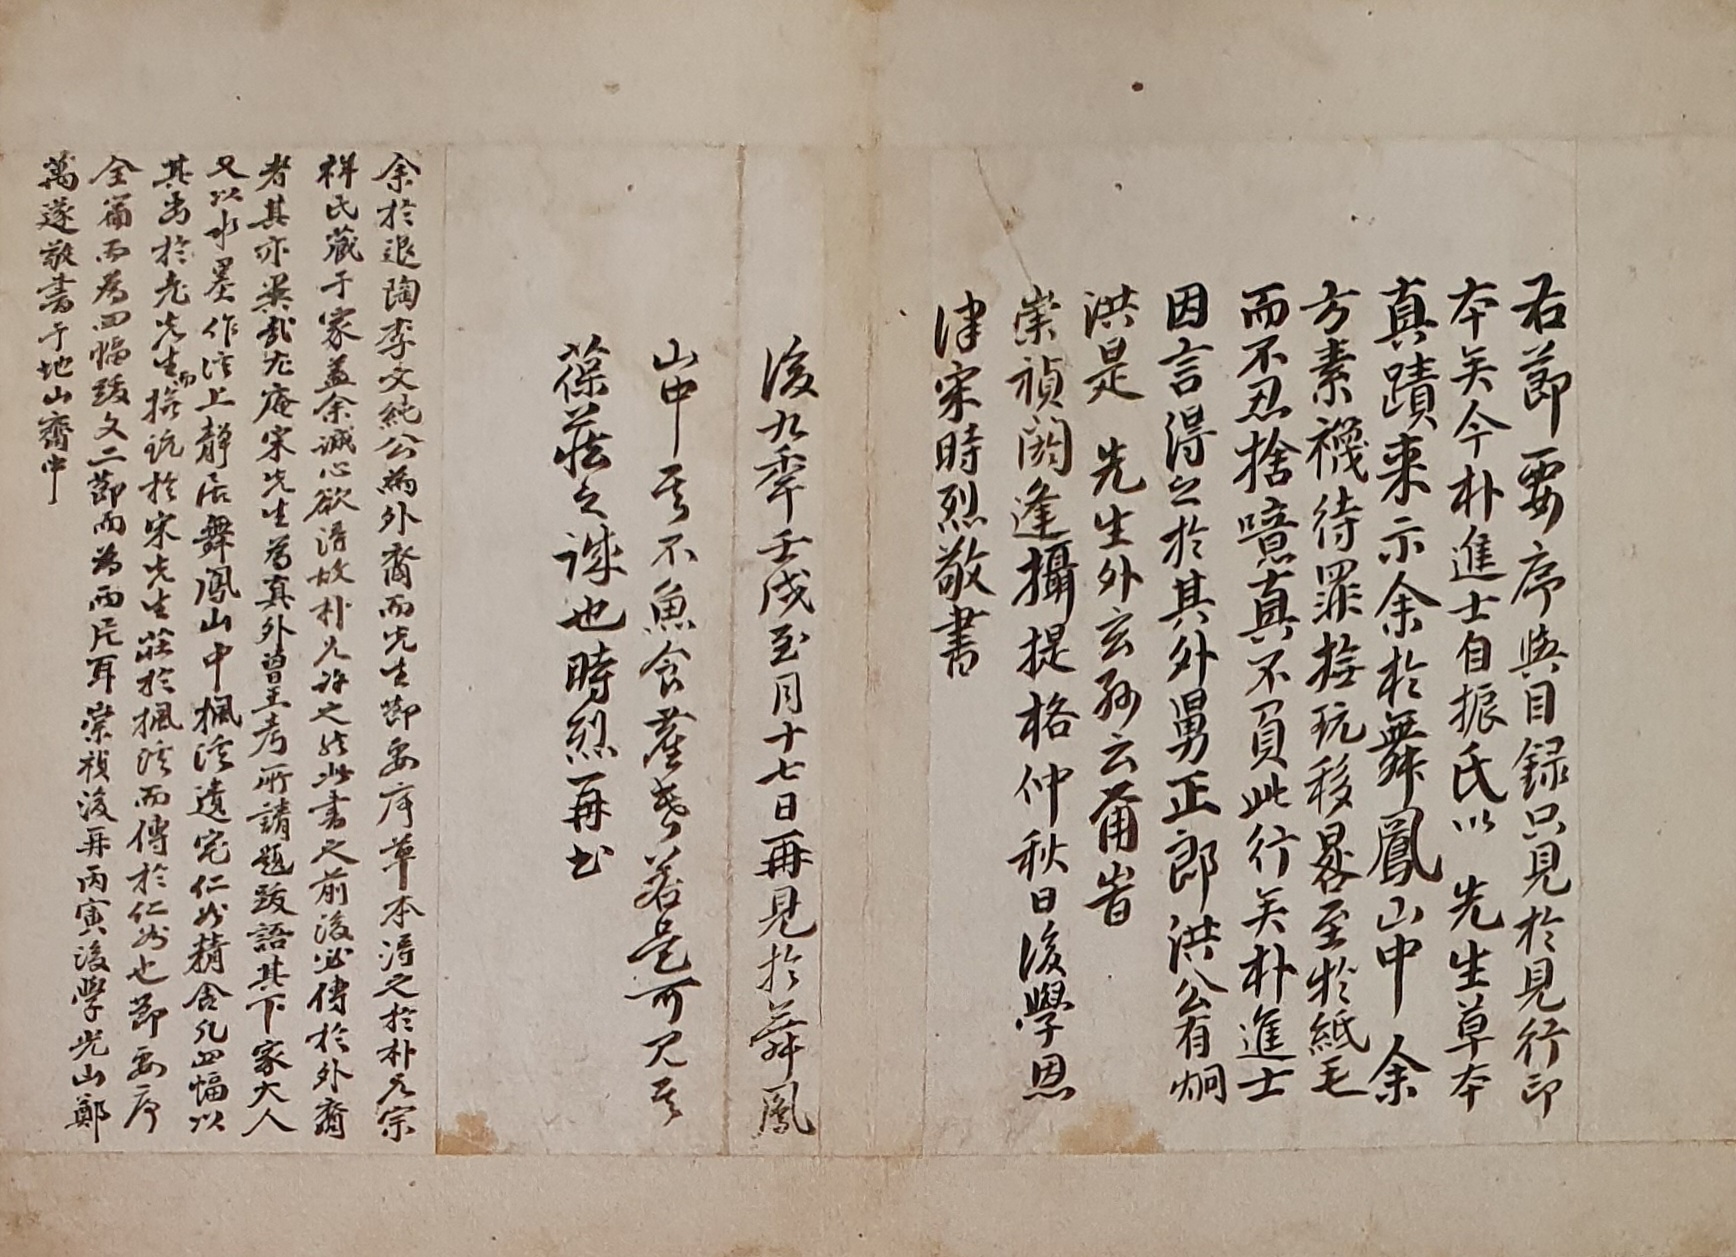 右節要序與目録只見於見行印
本矣今朴進士自振氏以 先生草本
真蹟来示余於舞鳳山中 余
方素襪待罪捻玩移晷至於紙毛
而不忍捨噫真不負此行矣朴進士
因言得之於其外舅正郎洪公有炯
洪是 先生外玄孫云甫旹
崇禎閼逢攝提格仲秋日後學恩
津宋時烈敬書
後九秊壬戌至月十七日再見於舞鳳
山中 不魚食 若是可見其
葆莊之誠也時烈再书
余於退陶李文純公為外裔而先生節要序草本得之於朴兄宗
祥氏蔵于家盖余誠心欲得故朴兄許之然此書之前後必傳於外裔
者其亦異哉尤庵宋先生為真外曾王考所請題跋語其下家大人
又以水墨作溪上靜居舞鳳山中楓溪遺宅仁州精舍凡四幅以
其出於老先生而捻玩於宋先生莊於楓溪而傳於仁州也節要序
全篇而為四幅跋文二節而為兩片耳崇禎後再丙寅後學光山鄭
萬遂敬書于地山齋中